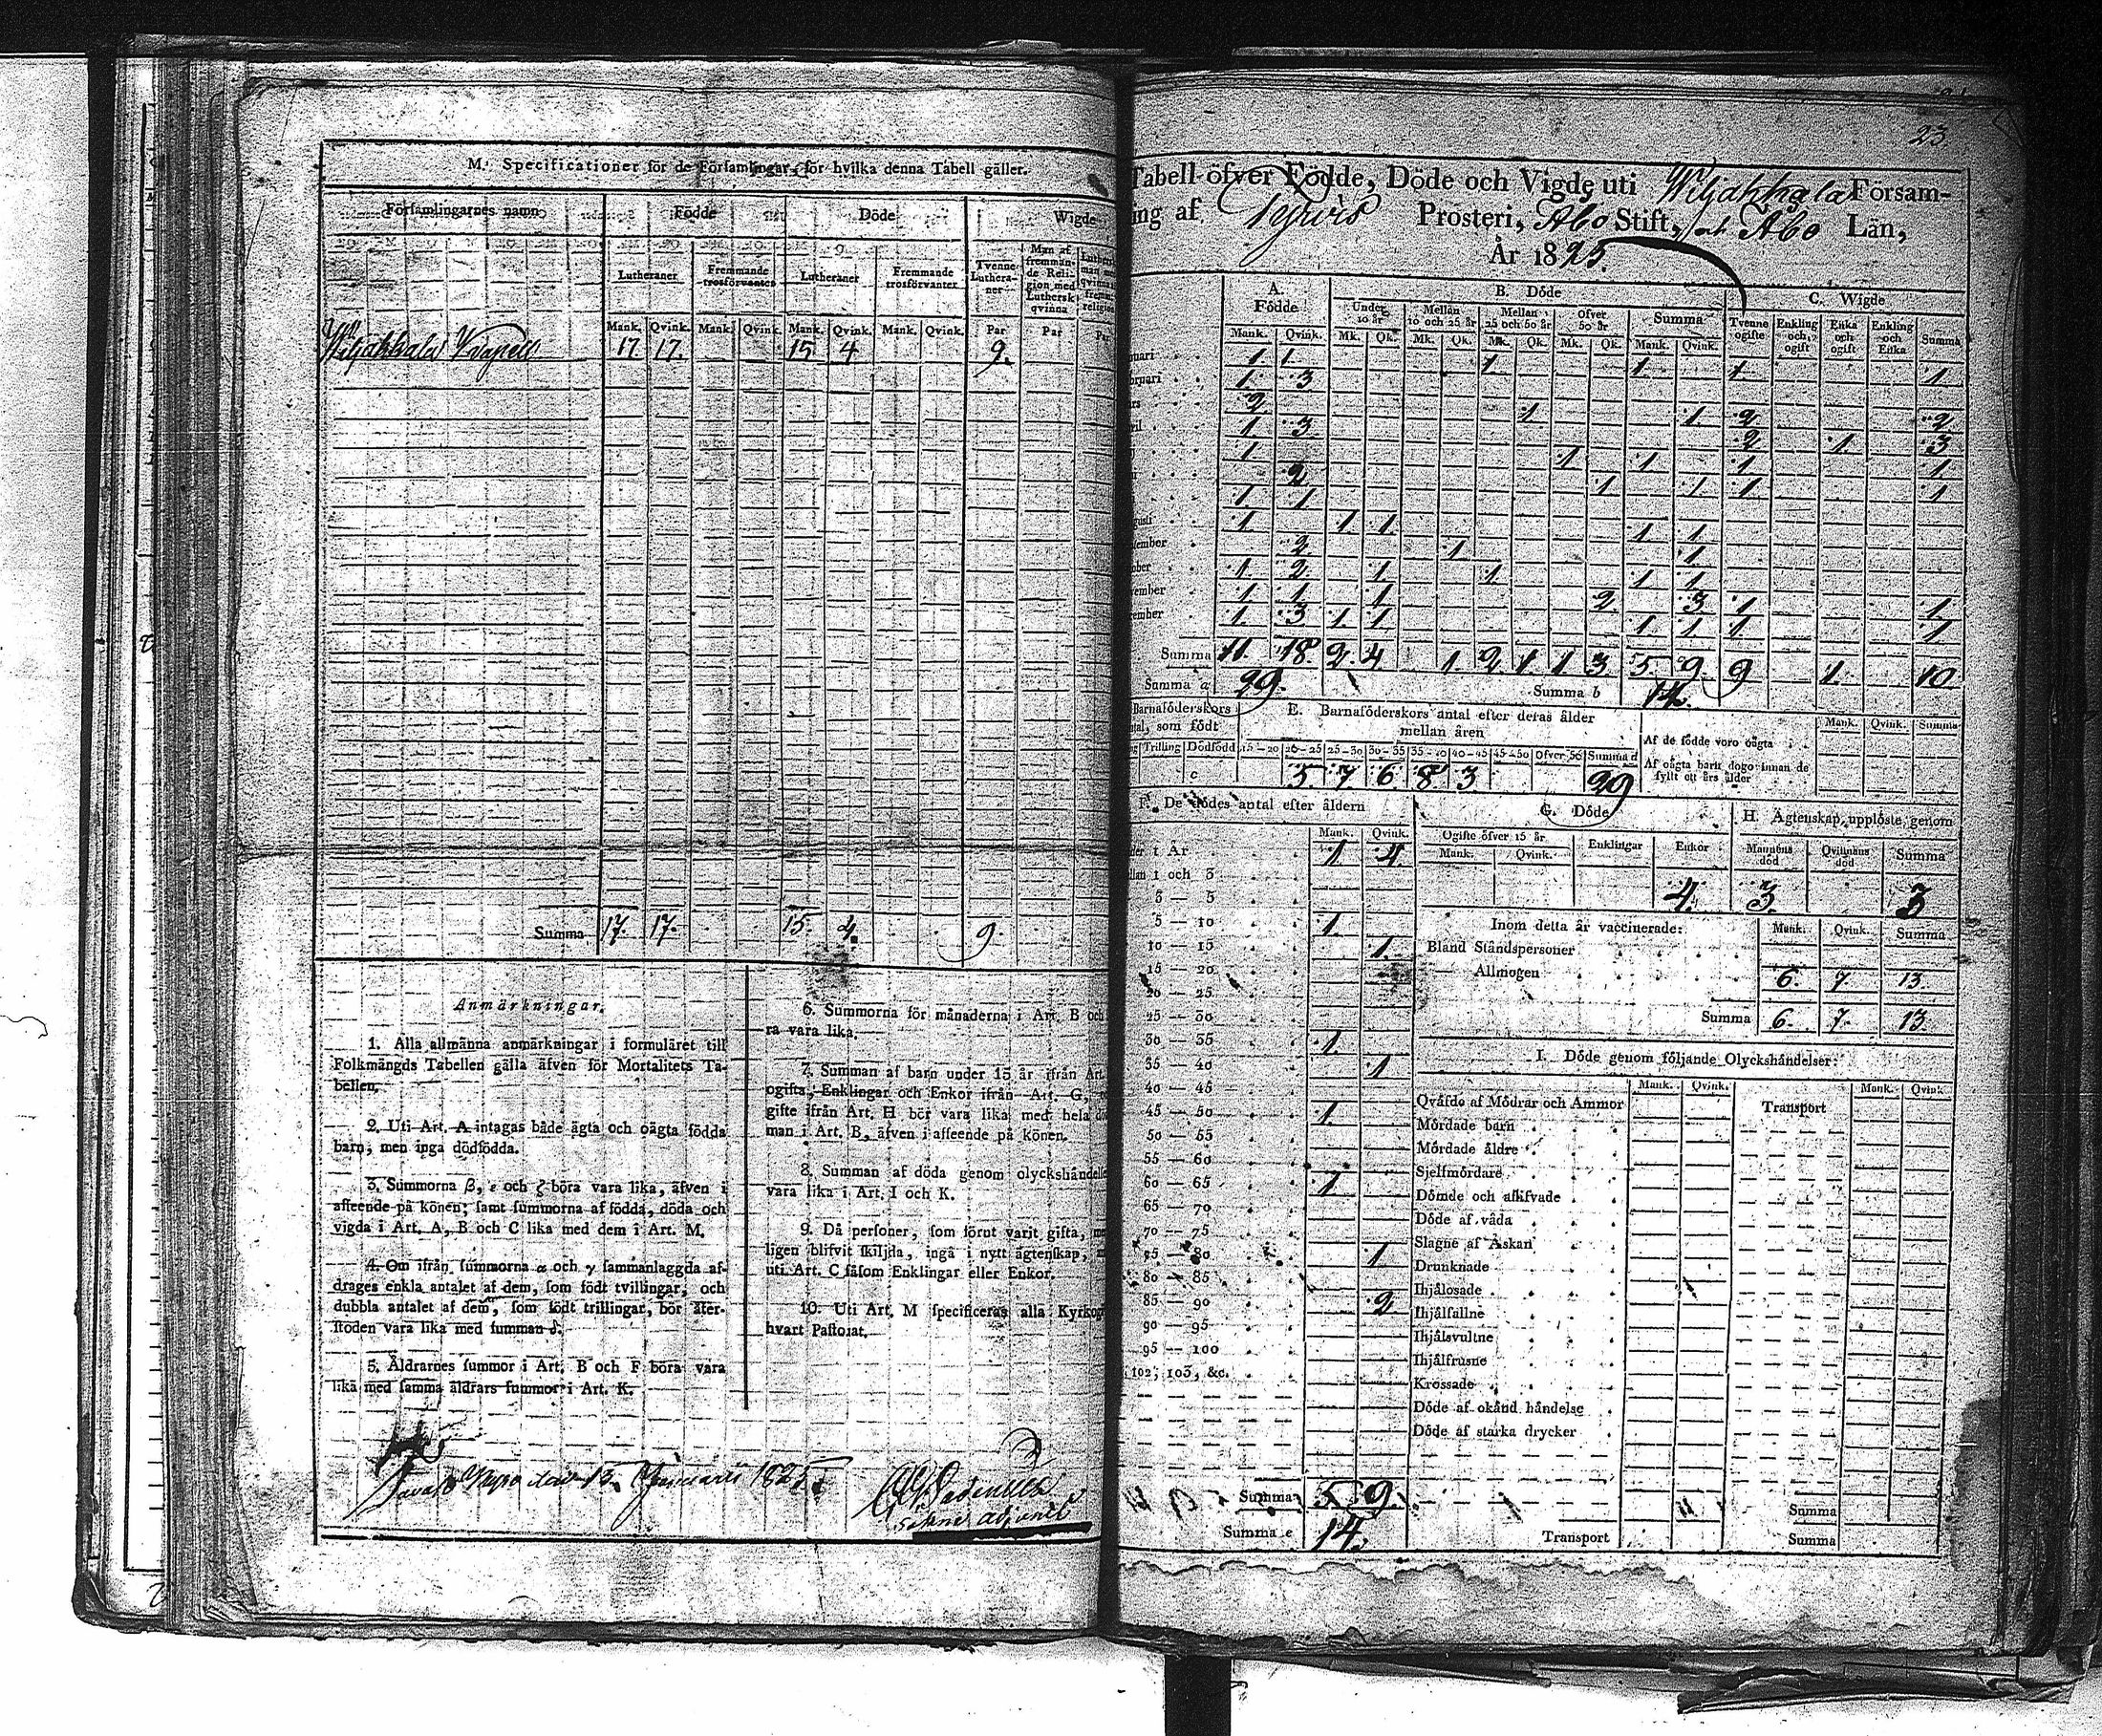 M. Specificationer för de Församlingar, för hvilka denna Tabell gäller.
Församlingarnes namn Födde Döde Wigde
Lutheraner Fremmande trosförvanter Lutheraner Fremmande trosförvanter Tvenne Lutheraner Man af fremmande Religion med Luthersk qvinna
Mank. Qvink. Mank. Qvink. Mank. Qvink. Mank. Qvink. Par Par
Wiljakkala Kapell 17 17. 15 4 9.
Summa 17. 17. 15. 4. 9
Anmärkningar.
1. Alla allmänna anmärkningar i formuläret till
Folkmängds Tabellen gälla äfven för Mortalitets Ta-
bellen.
2. Uti Art. A intagas både ägta och oägta födda
barn, men inga dödfödda.
3. Summorna β, ε och ζ böra vara lika, äfven i
afseende på könen; samt summorna af födda, döda och
vigda i Art. A, B och C lika med dem i Art. M.
4. Om ifrån summorna α och γ sammanlaggda af-
drages enkla antalet af dem, som födt tvillingar, och
dubbla antalet af dem, som födt trillingar, bör åter-
stoden vara lika med summan δ.
5. Åldrarnes summor i Art. B och F böra vara
lika med samma åldrars summor i Art. K.
6. Summorna för månaderna i Art. B och
ra vara lika.
7. Summan af barn under 15 år ifrån Art.
ogifta, Enklingar och Enkor ifrån Art. G,
gifte ifrån Art. H bör vara lika med hela
man i Art. B, äfven i afseende på könen.
8. Summan af döda genom olyckshändelse
vara lika i Art. I och K.
9. Då personer, som förut varit gifta,
ligen blifvit skiljda, ingå i nytt ägtenskap,
uti Art. C såsom Enklingar eller Enkor.
10. Uti Art. M specificeras alla
hvart Pastorat.
Januarii 1825
23.
Tabell öfver Födde, Döde och Vigde uti Wiljakkala Församling
af Tyrvis Prosteri, Åbo Stift, Åbo Län,
År 1825.
A. Födde B. Döde C. Wigde
Under 10 år Mellan 10 och 25 år Mellan 25 och 50 år Öfver 50 år Summa Tvenne ogifte Enkling och ogift Enka och ogift Enkling och Enka Summa
Mank. Qvink. Mk. Qk. Mk. Qk. Mk. Qk. Mk. Qk. Mank. Qvink.
1 1 1 1 1 1
1 3
2 1 1 2 2
1 3 2 1 3
1 1 1 1 1
2 1 1 1 1
1 1
1 1 1 1 1
2 1 1
1 2 1 1 1 1
1 1 1 2 3 1 1
1 3 1 1 1 1 1 1
Summa 11. 18. 2. 4 1. 2 1. 1. 3 5. 9. 9 1. 10.
Summa a 29. Summa b 14.
Barnaföderskors antal, som födt
Trilling Dödfödd
c
E. Barnaföderskors antal efter deras ålder mellan åren
15-20 20-25 25-30 30-35 35-40 40-45 45-50 Öfver 50 Summa d
5. 7. 6. 8 3 29
Mank. Qvink. Summa
Af de födde voro oägta
Af oägta barn dogo innan de fyllt ett års ålder
F. De dödes antal efter åldern
Mank. Qvink.
Under 1 År 1 4.
Mellan 1 och 3
3 — 5
5 — 10 1.
10 — 15 1.
15 — 20
20 — 25
25 — 30
30 — 35 1.
35 — 40 1
40 — 45
45 — 50 1.
50 — 55
55 — 60
60 — 65 1
65 — 70
70 — 75
75 — 80 1
80 — 85
85 — 90 2
90 — 95
95 — 100
102, 103, &c.
Summa 5. 9.
Summa e 14.
G. Döde
Ogifte öfver 15 år Enklingar Enkor
Mank. Qvink.
4.
H. Ägtenskap upplöste genom
Mannens död Qvinnans död Summa
3. 3
Inom detta år vaccinerade: Mank. Qvink. Summa
Bland Ståndspersoner
— Allmogen 6. 7. 13.
Summa 6. 7. 13.
I. Döde genom följande Olyckshändelser:
Mank. Qvink. Mank. Qvink.
Qväfde af Mödrar och Ammor Transport
Mördade barn
Mördade äldre
Sjelfmördare
Dömde och afslifvade
Döde af våda
Slagne af Åskan
Drunknade
Ihjälosade
Ihjälfallne
Ihjälsvultne
Ihjälfrusne
Krossade
Döde af okänd händelse
Döde af starka drycker
Summa
Transport Summa